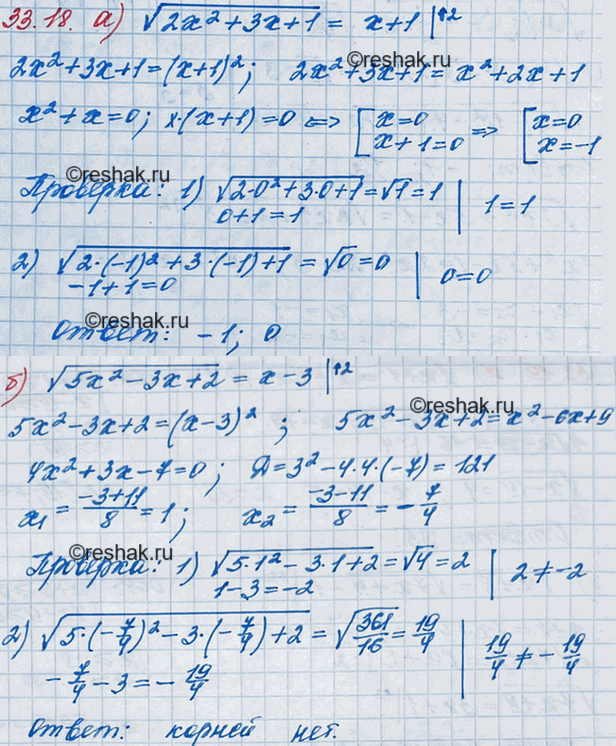 33.18. а) √(2x²+3x+1) = x+1 |↑2
2x²+3x+1=(x+1)²; 2x²+3x+1=x²+2x+1
x²+x=0; x·(x+1)=0 ⟺ [x=0 x+1=0 ⟹ [x=0 x=-1
©reshak.ru
Проверка: 1) √(2·0²+3·0+1)=√1=1 | 1=1
0+1=1
2) √(2·(-1)²+3·(-1)+1)=√0=0 | 0=0
-1+1=0
©reshak.ru
Ответ: -1; 0
б) √(5x²-3x+2) = x-3 |↑2
©reshak.ru
5x²-3x+2=(x-3)²; 5x²-3x+2=x²-6x+9
4x²+3x-7=0; Д=3²-4·4·(-7)=121
x₁=(-3+11)/8=1; x₂=(-3-11)/8=-7/4
©reshak.ru
Проверка: 1) √(5·1²-3·1+2)=√4=2 | 2≠-2
1-3=-2
2) √(5·(-7/4)²-3·(-7/4)+2)=√(361/16)=19/4 | 19/4≠-19/4
-7/4-3=-19/4
Ответ: корней нет.